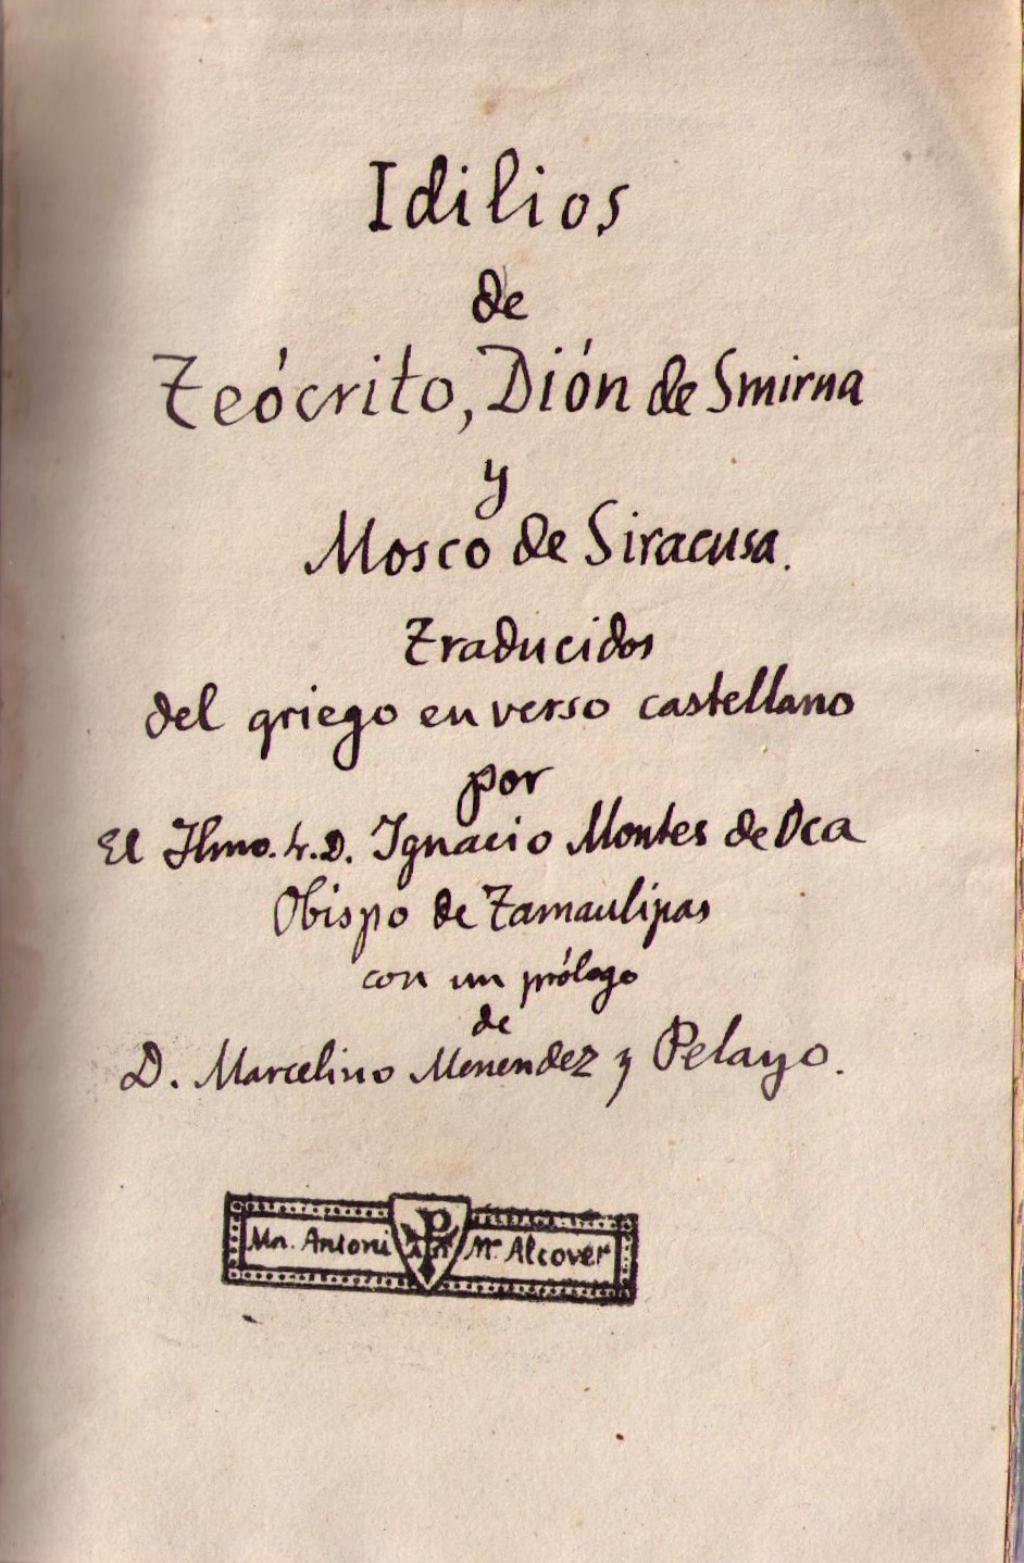 Idilios
de
Teócrito, Dión de Smirna
y
Mosco de Siracusa.
Traducidos
del griego en verso castellano
por
El Ilmo. Sr. D. Ignacio Montes de Oca
Obispo de Tamaulipas
con un prólogo
de
D. Marcelino Menendez y Pelayo.
Mn. Antoni Mª Alcover